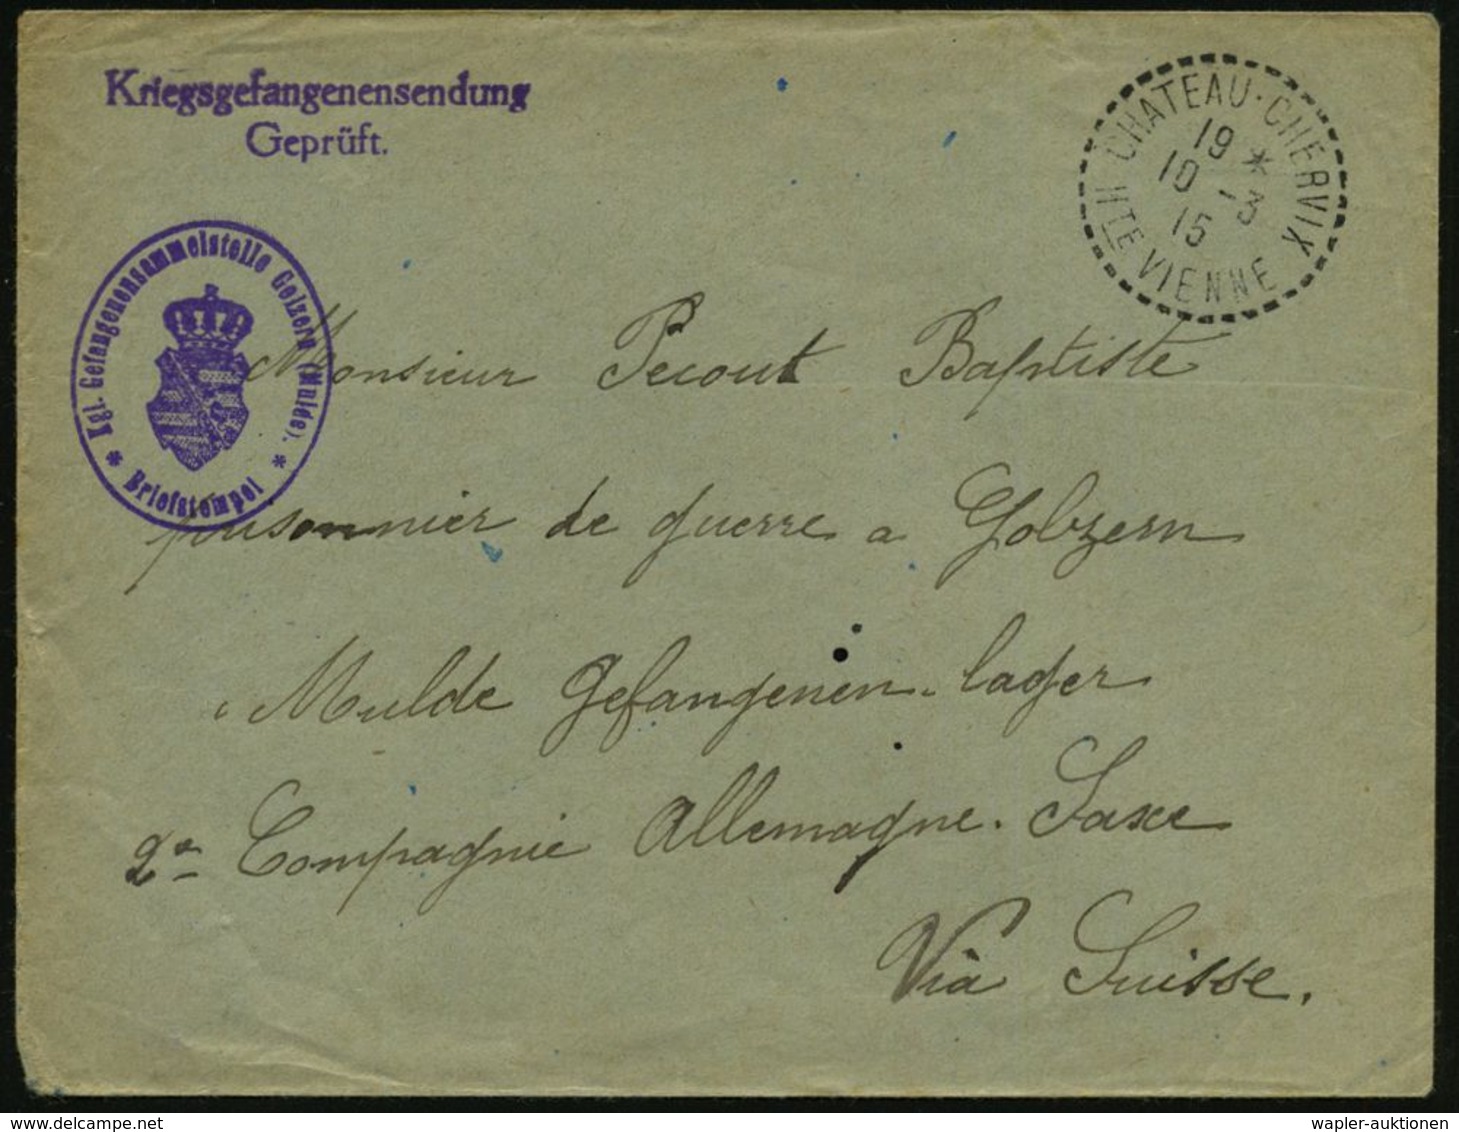 Kriegsgefangenensendung
Geprüft.
CHATEAU-CHERVIX
19 *
10 -3
15
HTE VIENNE
Kgl. Gefangenensammelstelle Golzern (Mulde).
* Briefstempel *
Monsieur Pecout Baptiste
prisonnier de guerre a Golzern
Mulde Gefangenen-lager
2e Compagnie Allemagne. Saxe
Via Suisse.
wapler-auktionen